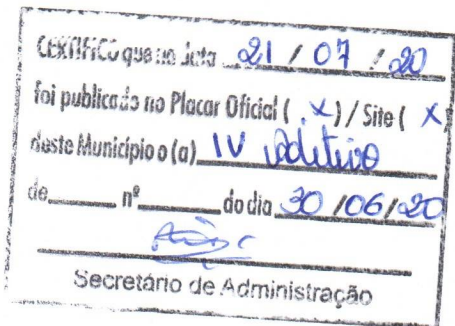 CERTIFICO que na data 21 / 07 / 20
foi publicado no Placar Oficial ( x ) / Site ( x
deste Município o (a) IV Aditivo
de______ nº______ do dia 30 /06/20
Secretário de Administração